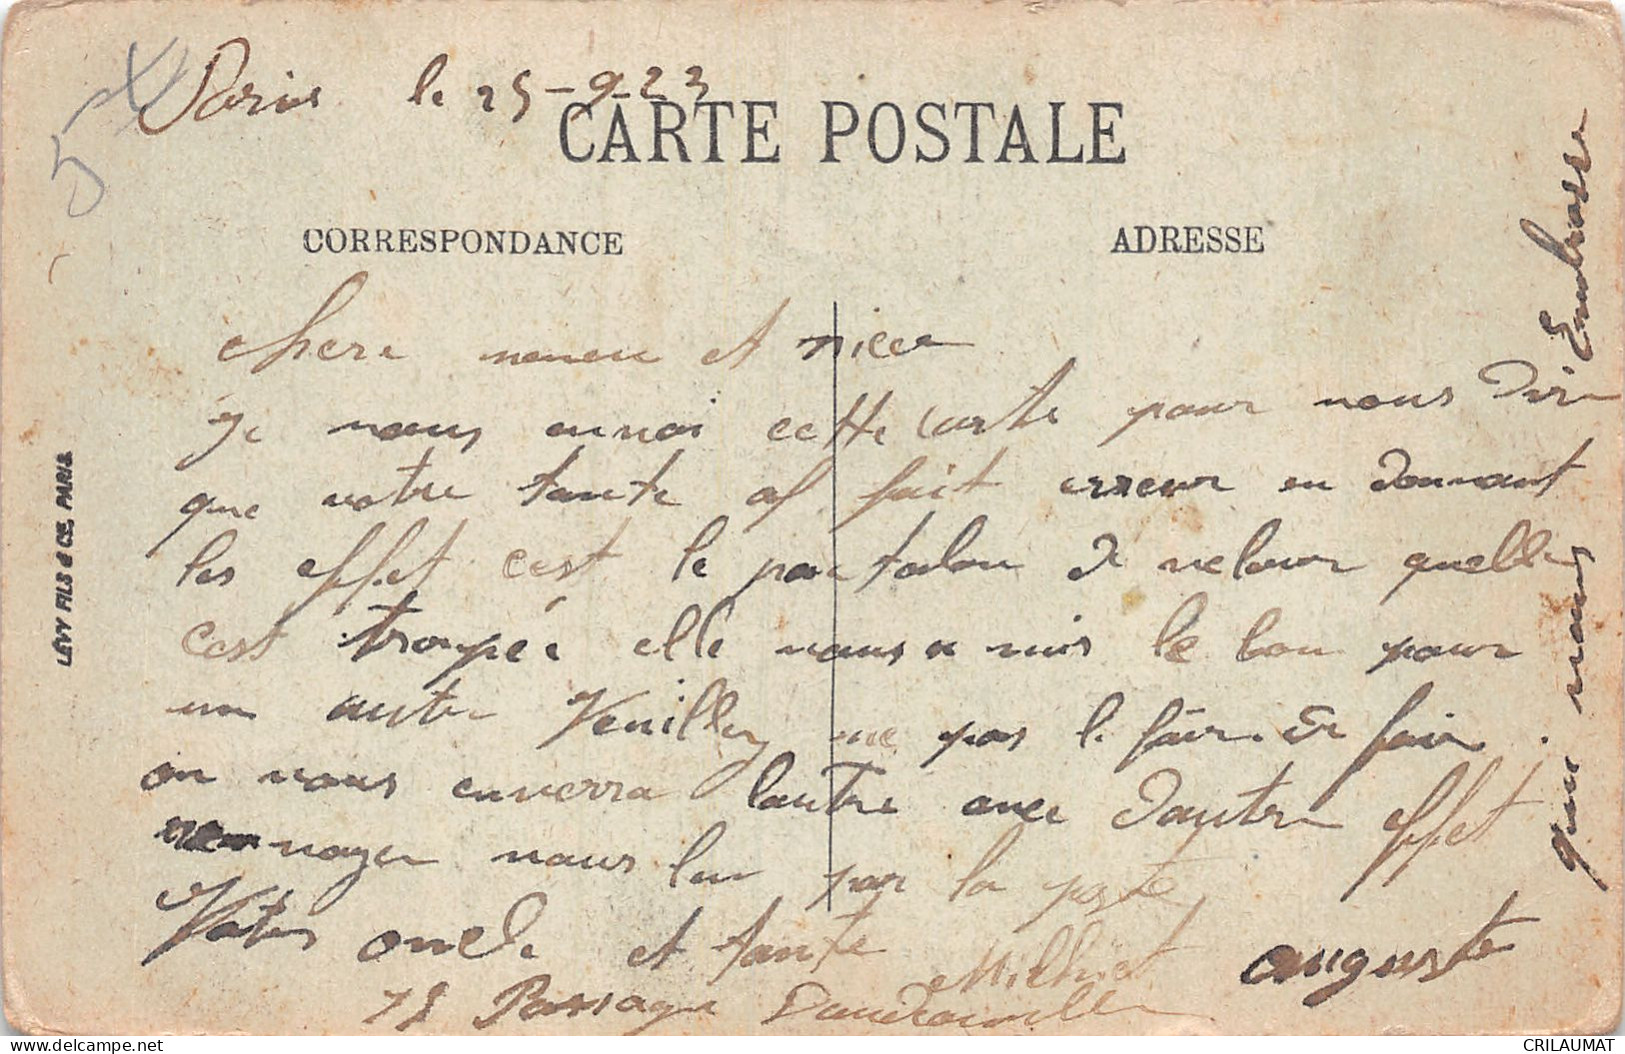 Paris le 25-9-23
CARTE POSTALE
CORRESPONDANCE
ADRESSE
chere neveu et niece
je vous envoi cette carte pour vous Dir
que votre tante af fait erreur en donnant
les effet c'est le pantalon de velour quelle
c'est trompée elle vous a mis le bon pour
un autre Veuillez ne pas le faire
on vous enverra lautre avec dautre effet
renvoyer nous lun par la poste
Votre oncle et tante Milhiet auguste
18 Passage
qui vous Embrasse
LÉVY FILS & CIE, PARIS.
CRILAUMAT